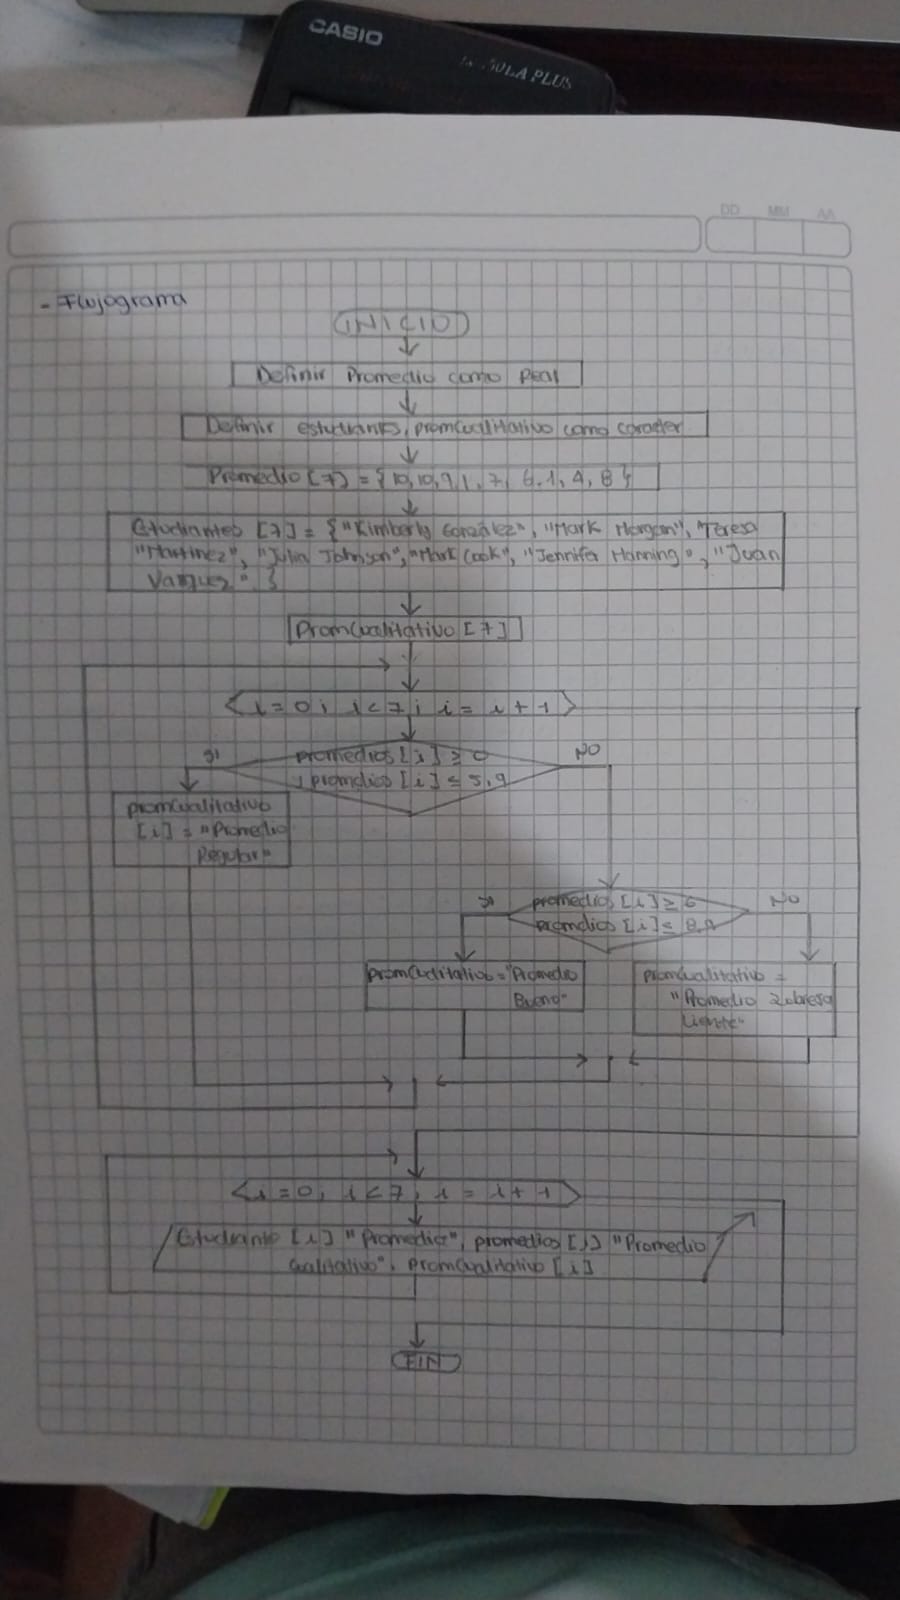 CASIO
PLUS
DD MM AA
- Flujograma
INICIO
Definir Promedio como Real
Definir estudiantes, promCualitativo como caracter
Promedio [7] = {10, 10, 9,1, 7, 6.1, 4, 8}
Estudiantes [7] = {"Kimberly González", "Mark Morgan", Teresa
"Martinez", "Julia Johnson", "Mark Cook", "Jennifer Hanning", "Juan
Vazquez" }
PromCualitativo [7]
i = 0; i < 7; i = i + 1
promedios [i] ≥ 0
y promdios [i] ≤ 5,9
SI
NO
promCualitativo
[i] = "Promedio
Regular"
promedios [i] ≥ 6
promdios [i] ≤ 8,9
SI
NO
promCualitativo = "Promedio
Bueno"
promCualitativo =
"Promedio Sobresa
liente"
i = 0, i < 7, i = i + 1
Estudiante [i] "Promedio", promedios [i] "Promedio
Cualitativo", promCualitativo [i]
FIN